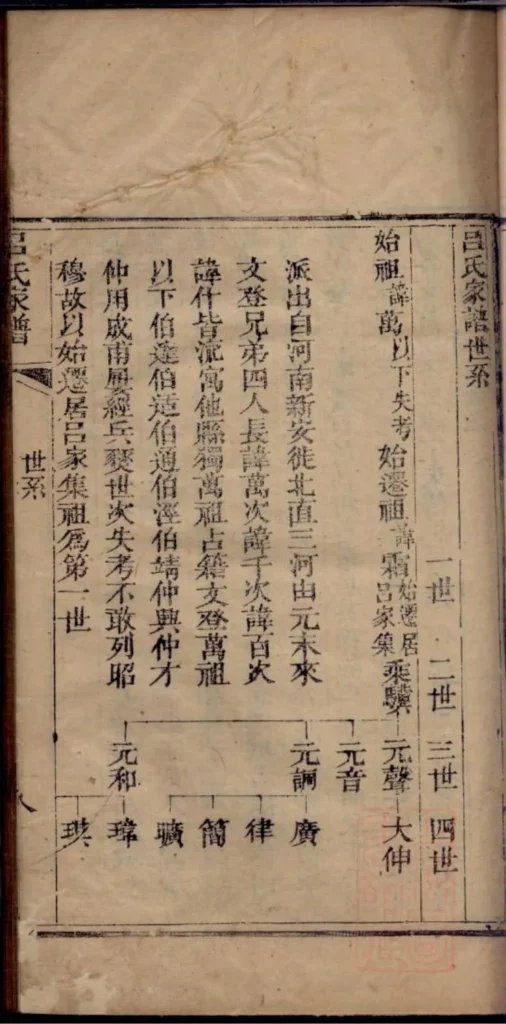 呂氏家譜世系
一世 二世 三世 四世
始祖諱萬以下失考始遷祖諱霜始遷居呂家集乘驥 元聲 大伸
派出自河南新安徙北直三河由元末來 元詷 廣
元音
文登兄弟四人長諱萬次諱千次諱百次 律
諱什皆流寓他縣獨萬祖占籍文登萬祖 簡
以下伯達伯适伯通伯溼伯靖仲興仲才 曠
仲用成甫屢經兵燹世次失考不敢列昭 元和 瑋
穆故以始遷居呂家集祖為第一世 琪
呂氏家譜
世系
八